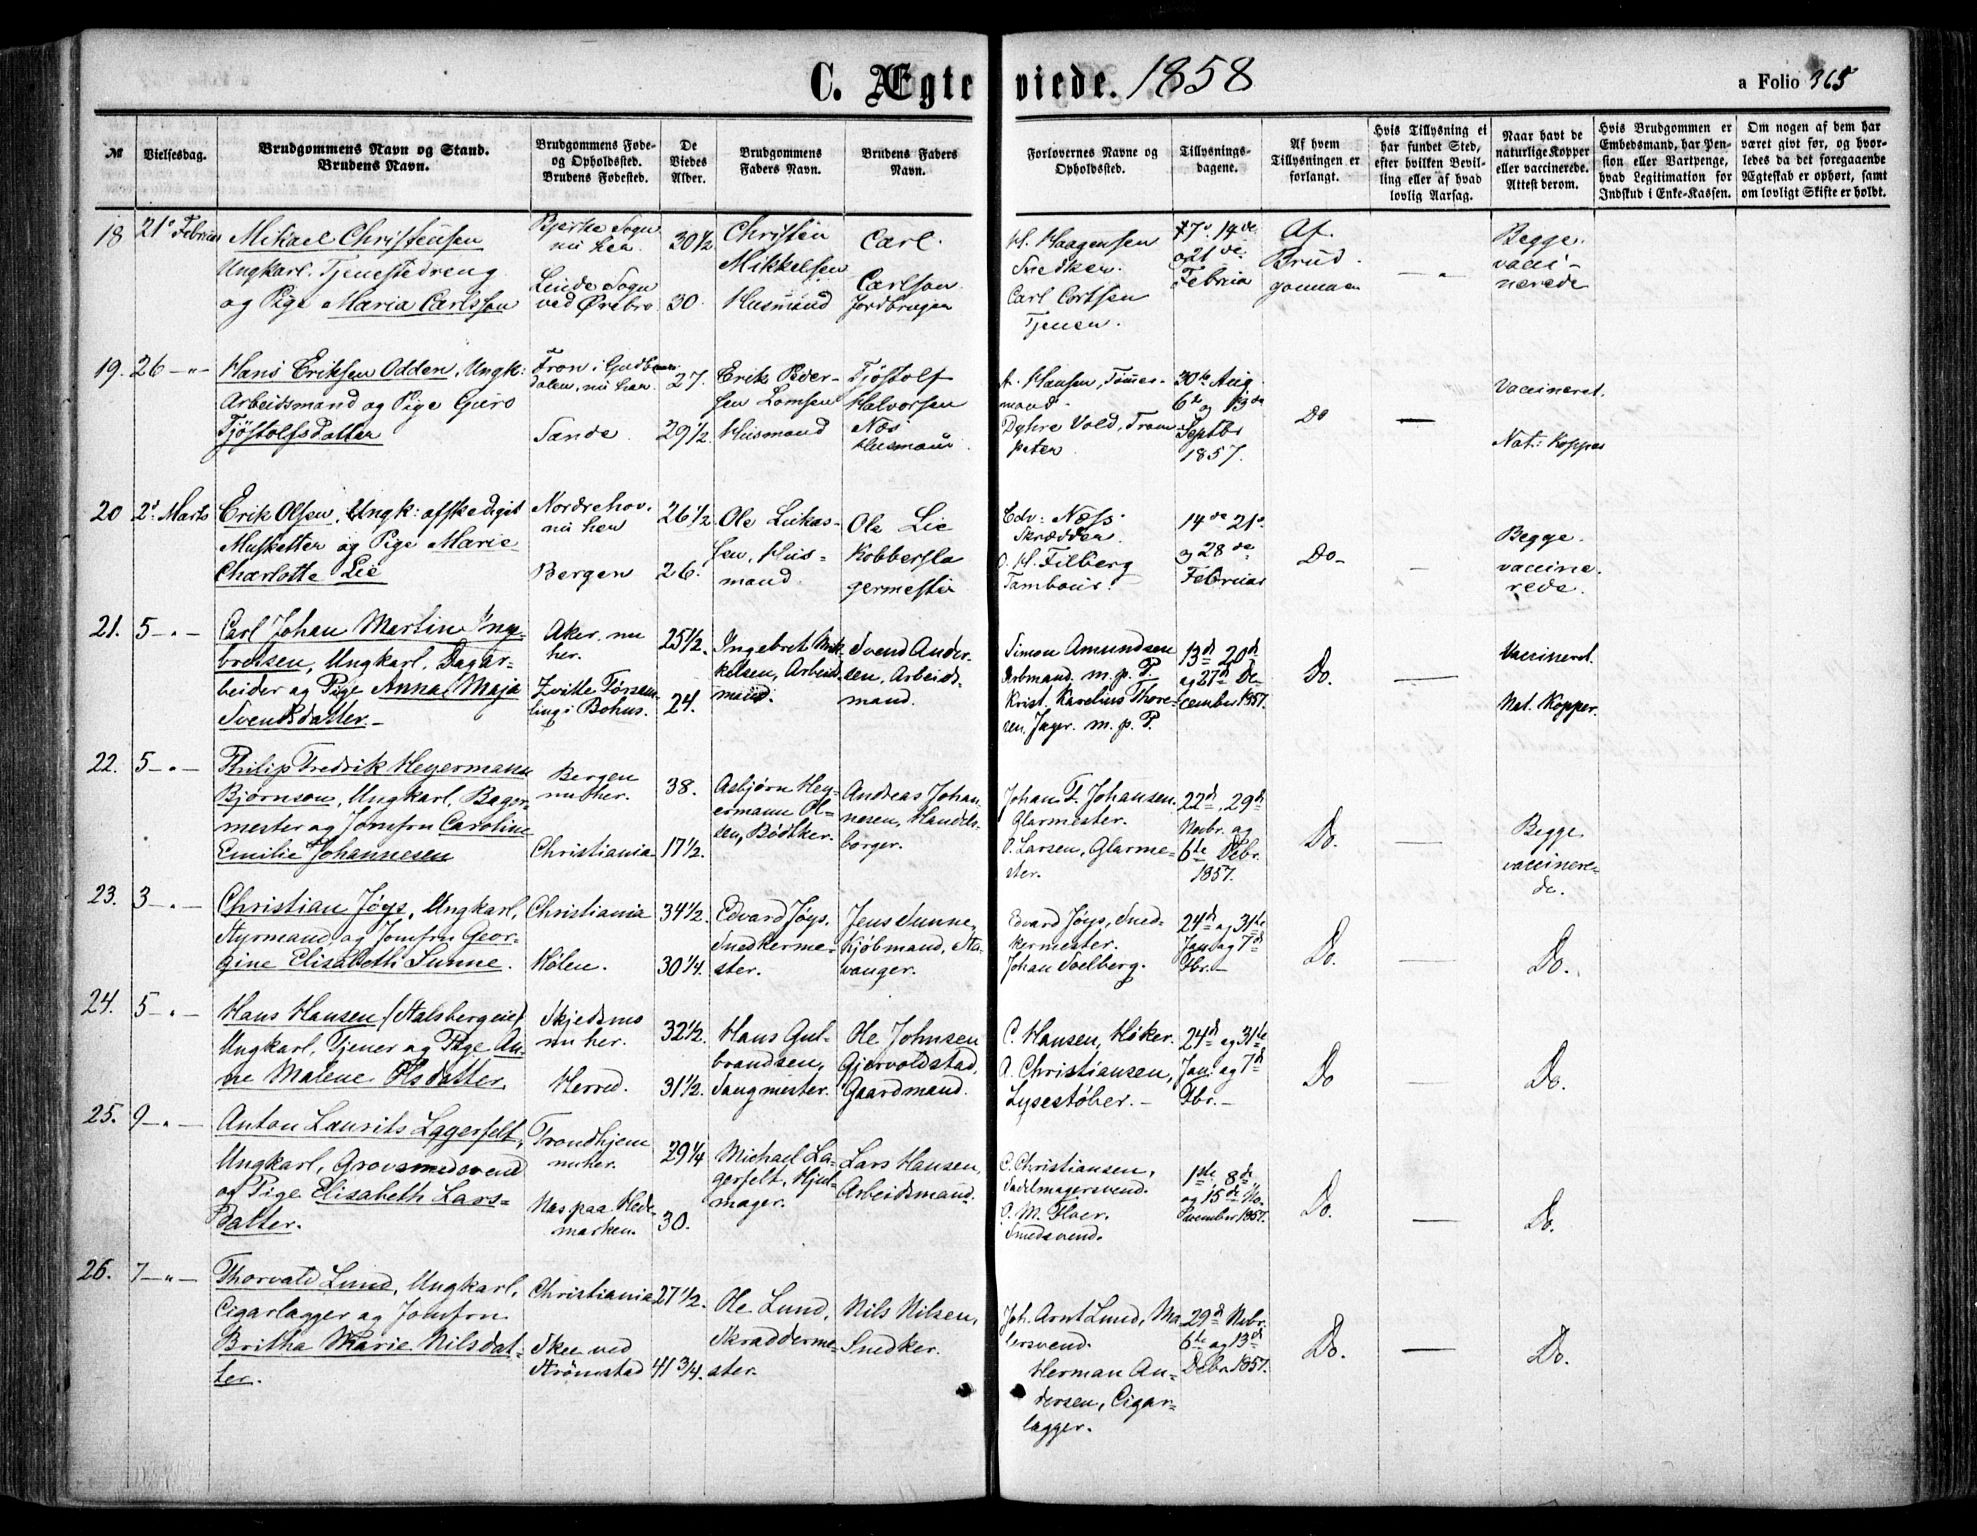 C. Ægteviede. 1858
a Folio 365
№
Vielsesdag.
Brudgommens Navn og Stand.
Brudens Navn.
Brudgommens Føde-
og Opholdssted.
Brudens Fødested.
De
Viedes
Alder.
Brudgommens
Faders Navn.
Brudens Faders
Navn.
Forlovernes Navne og
Opholdssted.
Tillysnings-
dagene.
Af hvem
Tillysningen er
forlangt.
Hvis Tillysning ei
har fundet Sted,
efter hvilken Bevil-
ling eller af hvad
lovlig Aarsag.
Naar havt de
naturlige Kopper
eller vaccinerede.
Attest derom.
Hvis Brudgommen er
Embedsmand, har Pen-
sion eller Vartpenge,
hvad Legitimation for
Indskud i Enke-Kassen.
Om nogen af dem har
været givt før, og hvor-
ledes da det foregaaende
Ægteskab er ophørt, samt
om lovligt Skifte er holdt.
18
21de Februar
Mikael Christensen
Ungkarl. Tjenestedreng
og Pige Maria Carlsson
Bjerke Sogn
nu her
Linde Sogn
ved Ørebro
30 1/2
30.
Christen
Mikkelsen
Husmand
Carl
Carlson
Jordbruger
H. Haagensen
Snedker.
Carl Cortsen
Tjener.
7de 14de
og 21de
Februar
Af
Brud
gommen
— " —
Begge
vacci-
nerede
19.
26 — " —
Hans Eriksen Odden, Ungk:
Arbeidsmand og Pige Guro
Tjøstolfsdatter
Fron i Gudbrans
dalen, nu her.
Sande.
27.
29 1/2.
Erik Peder-
sen Lomsen
Husmand
Tjøstolf
Halvorsen
Næs
Husmand
A. Hansen, Tømer-
mand.
Dyhre Vold, Trom-
peter
30te Aug.
6te og 13de
Septbr
1857.
Do
—
Vaccineret.
Nat: Kopper
20
2de Marts
Erik Olsen, Ungk: afskediget
Musketter og Pige Marie
Charlotte Lie
Nordrehov.
nu her
Bergen
26 1/2
26.
Ole Lukas-
sen, Hus-
mand.
Ole Lie
Kobbersla
germester
Edv: Næss
Skrædder.
O. H. Filberg
Tambour.
14de 21de
og 28de
Februar
Do-
—
Begge
vaccine-
rede.
21.
5 — " —
Carl Johan Martin Inge-
bretsen, Ungkarl, Dagar-
beider og Pige Anna Maja
Svendsdatter. –
Aker. nu
her.
i Bohus.
25 1/2.
24.
Ingebret Mik-
kelsen, Arbeids
mand.
Svend Ander-
sen, Arbeids-
mand.
Simon Amundsen
Arbmand. m. p. P.
Krist. Karelius Thore-
sen, Jæger. m. p. P.
13de 20de
og 27de De-
cember 1857.
Do.
—
Vaccineret.
Nat. Kopper.
22.
5 — " —
Philip Fredrik Heyermann
Bjørnson, Ungkarl, Bager-
mester og Jomfru Caroline
Emilie Johannesen
Bergen
nu her.
Christiania
38.
17 1/2.
Asbjørn Hey-
ermann Ol-
sen, Bødtker.
Andreas Johan-
nesen, Handels-
borger.
Johan F. Johansen.
Glarmester.
O. Larsen, Glarme-
ster.
22de, 29de
Novbr. og
6te Debr.
1857.
Do.
—
Begge
vaccinere-
de.
23.
3 — " —
Christian Jøys, Ungkarl,
Styrmand og Jomfru Geor-
gine Elisabeth Sunne.
Christiania
Hølen.
34 1/2.
30 1/4.
Edvard Jøys,
Snedkerme-
ster.
Jens Sunne,
Kjøbmand, Sta-
vanger.
Edvard Jøys, Sned-
kermester.
Johan Soelberg.
24de og 31te
Jan. og 7de
Fbr. –
Do.
—
Do.
24.
5 — " —
Hans Hansen (Stalsbergeie)
Ungkarl, Tjener og Pige An-
ne Malene Olsdatter
Skjedsmo
nu her.
Herred.
32 1/2.
31 1/2.
Hans Gul-
brandsen,
Saugmester.
Ole Johnsen
Gjervoldstad,
Gaardmand.
C. Hansen, Høker.
A. Christiansen,
Lysestøber. –
24de og 31te
Jan. og 7de
Fbr. –
Do
—
Do.
25.
9 — " —
Anton Laurits Lagerfelt,
Ungkarl, Grovsmedsvend
og Pige Elisabeth Lars-
datter.
Trondhjem
nu her.
Næs paa Hede-
marken.
29 1/4
30.
Michael La-
gerfelt, Hjul-
mager.
Lars Hansen,
Arbeidsmand.
C. Christiansen,
Sadelmagersvend.
Smedsvend.
1ste, 8de,
og 15de No-
vember 1857.
Do.
—
Do.
26.
7 — " —
Thorvald Lund, Ungkarl,
Cigarlægger og Jomfru
Britha Marie Nilsdat-
ter.
Christiania
Skee ved
Strømstad
27 1/2.
41 3/4.
Ole Lund,
Skrædderme-
ster.
Nils Nilsen,
Snedker.
Joh. Arnt Lund, Ma-
lersvend.
Herman An-
dersen, Cigar-
lægger.
29de Nvbr.
6te og 13de
Debr. 1857.
Do.
—
Do.